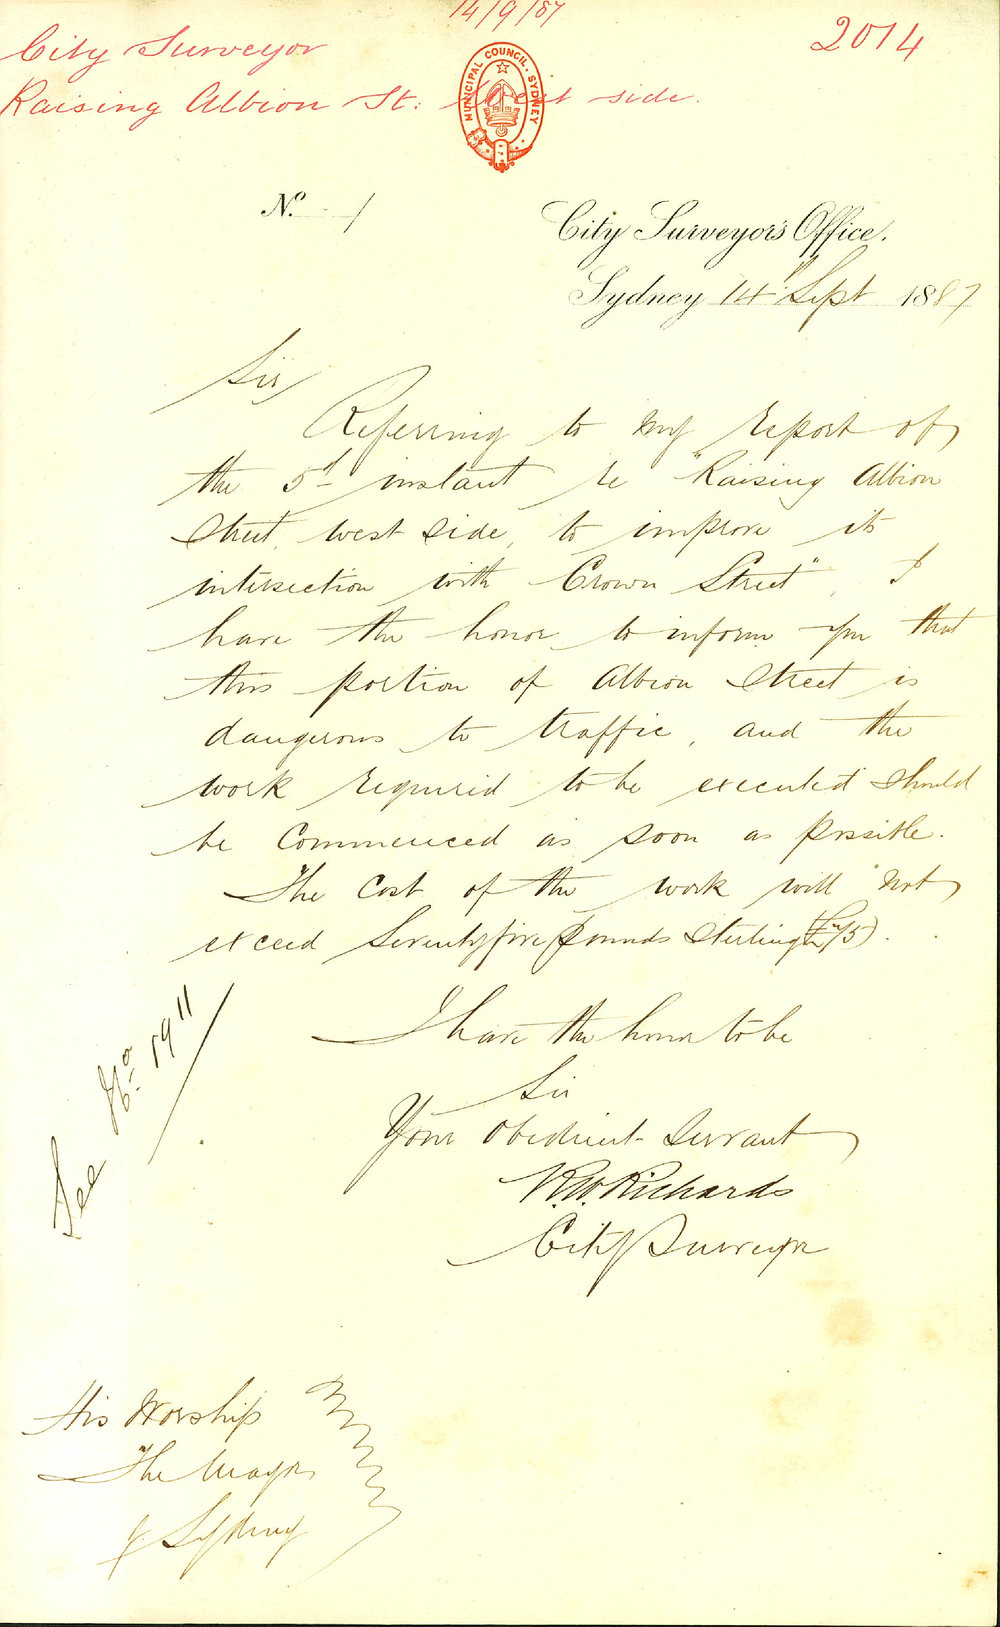 14/9/87
2014
City Surveyor
Raising Albion St: West side.
MUNICIPAL COUNCIL. SYDNEY
No. /
City Surveyor's Office.
Sydney 14th Sept 1887
Sir
Referring to my report of
the 5th instant re "Raising Albion
Street, west side, to improve its
intersection with Crown Street", I
have the honor to inform you that
this portion of Albion Street is
dangerous to traffic, and the
work required to be executed should
be commenced as soon as possible.
The cost of the work will not
exceed Seventyfive pounds Sterling (£75).
I have the honor to be
Sir
Your obedient servant
R.W. Richards
City Surveyor
See No. 1911
His Worship
The Mayor
of Sydney